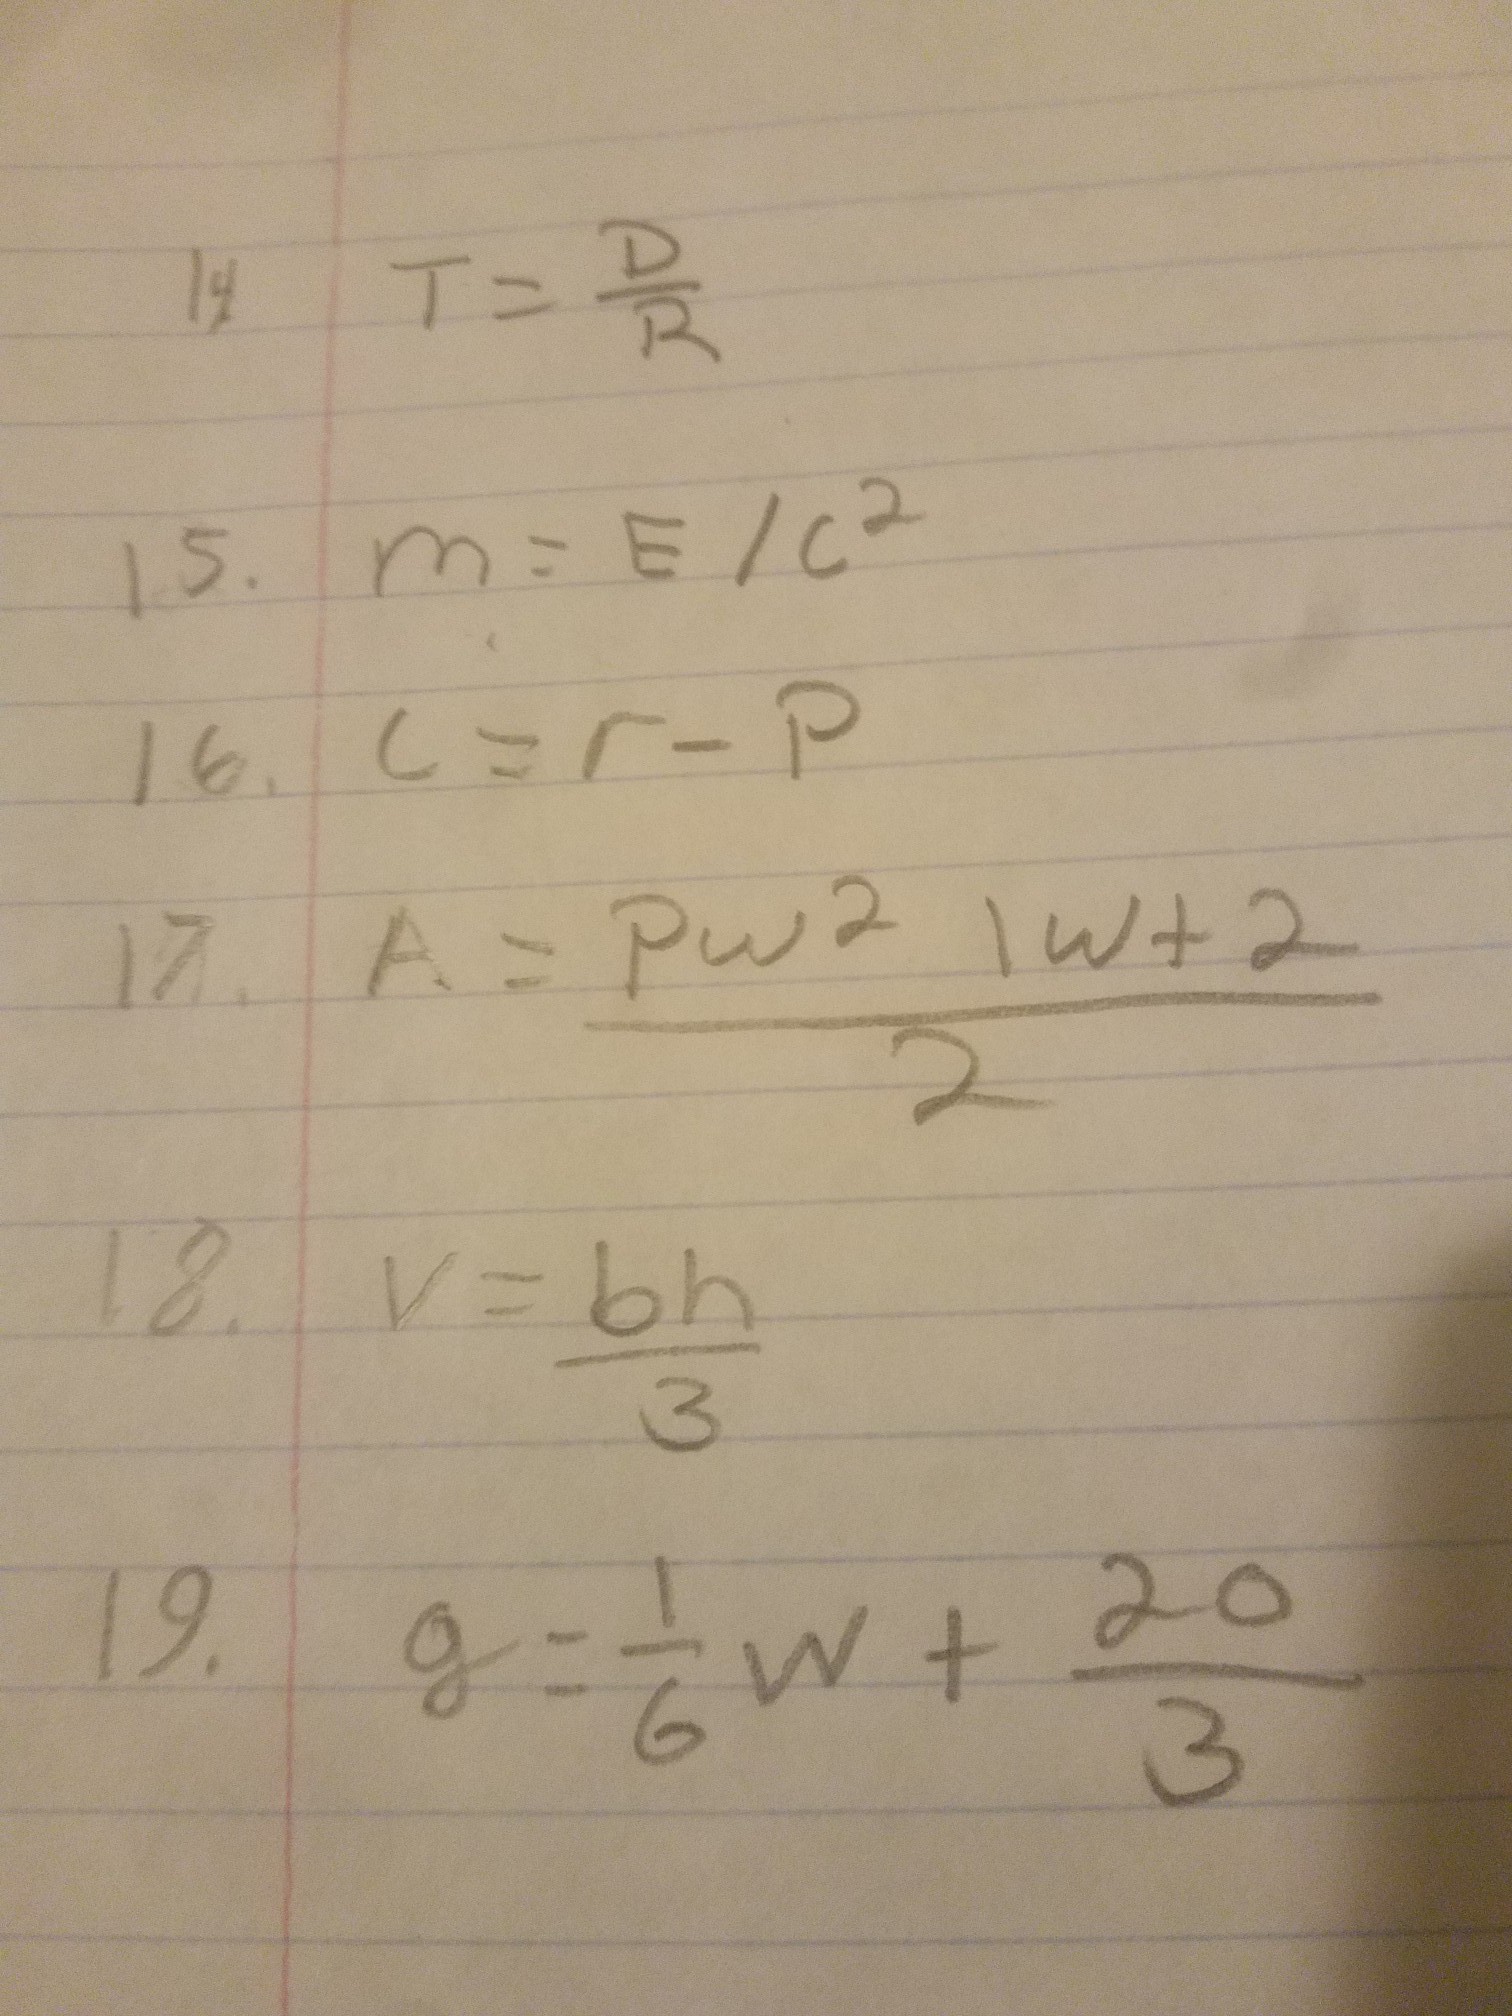 14 T = D/R
15. m = E/c²
16. C = r - P
17. A = Pw² lw+2 / 2
18. V = bh / 3
19. g = 1/6 W + 20/3